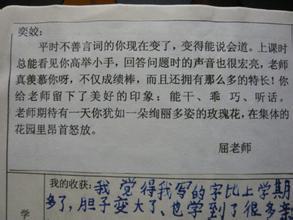 奕姣:
平时不善言词的你现在变了,变得能说会道。上课时
总能看见你高举小手,回答问题时的声音也很宏亮,老师
真羡慕你呀,不仅成绩棒,而且还拥有那么多的特长!你
给老师留下了美好的印象:能干、乖 巧、听话。
老师期待有一天你犹如一朵绚丽多姿的玫瑰花,在集体的
花园里昂首怒放。
屈老师
学
我的收获:我 觉得我写的字比上学期
多了,胆子变大了、也学到了很多